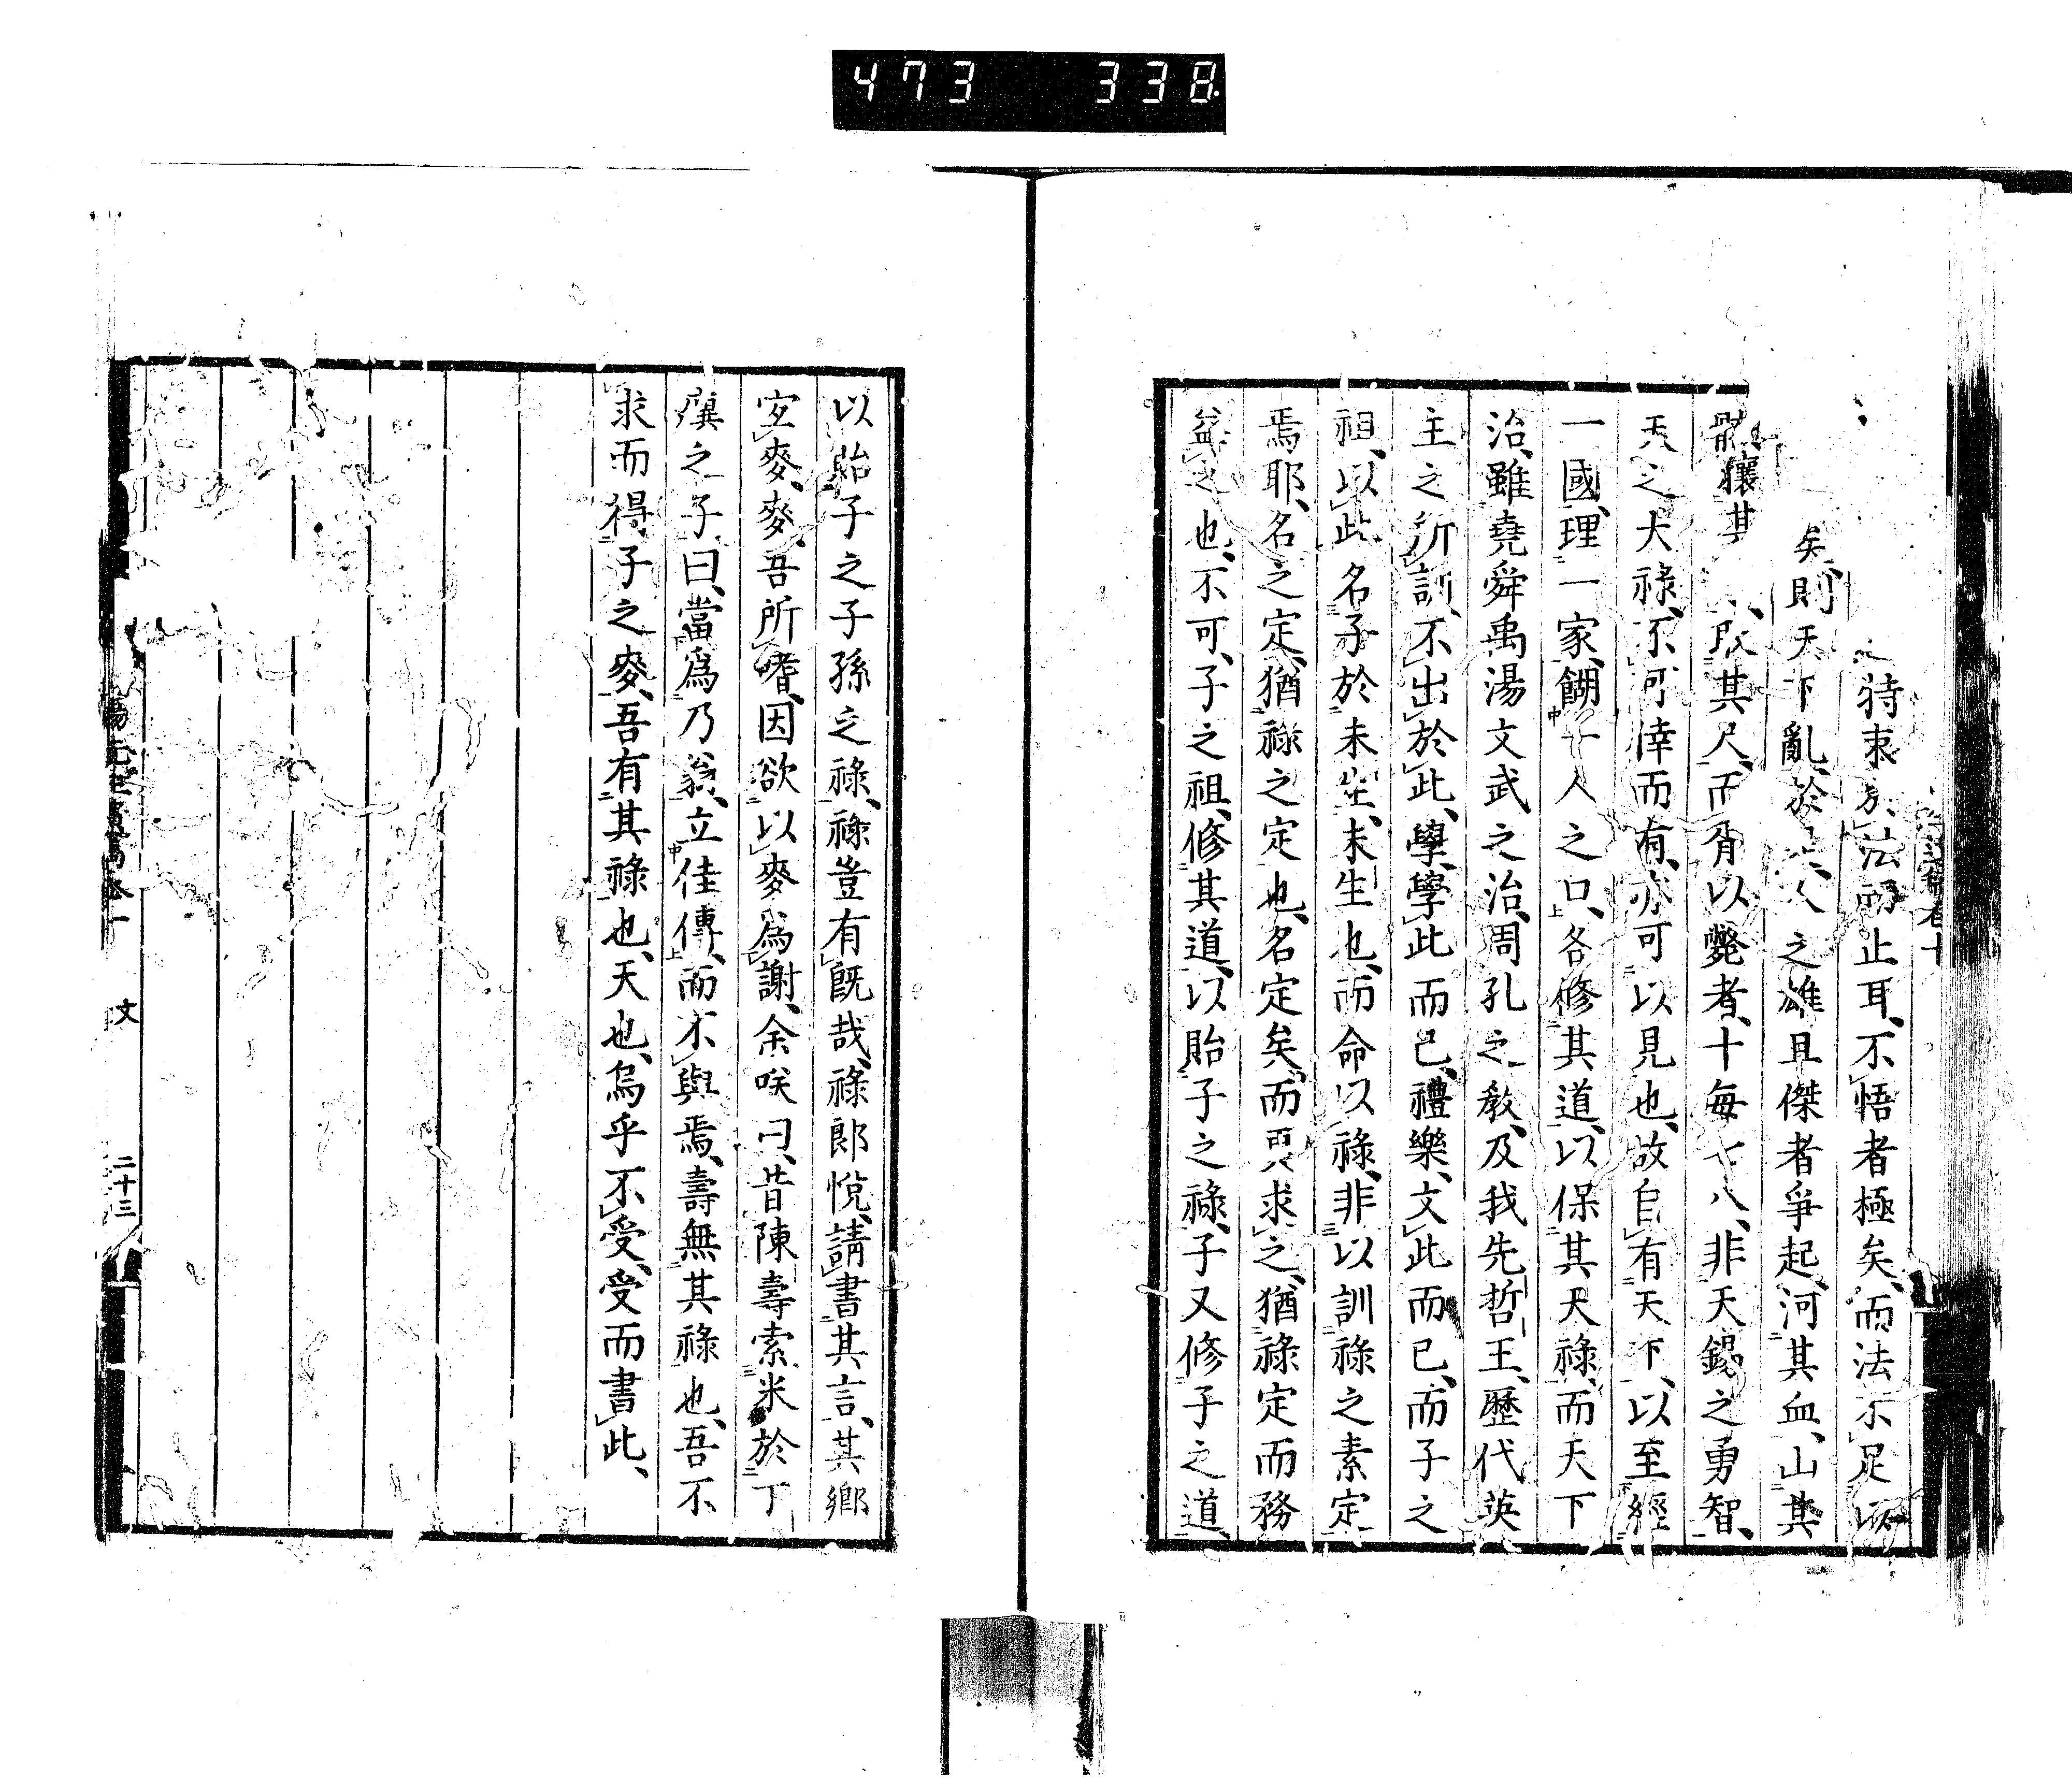 473 338
特衷於法而止耳、不悟者極矣、而法不足以
矣、則天下亂、於 人之雄且傑者爭起、河其血、山其
骸、攘其 、 其尺、而胥以斃者、十每七八、非天錫之勇智、
天之大祿、不可倖而有、亦可以見也、故自有天下、以至經
一國、理一家、餬十人之口、各修其道、以保其天祿、而天下
治、雖堯舜禹湯文武之治、周孔之教、及我先哲王、歷代英
主之所訓、不出於此、學、學此而已、禮樂、文此而已、而子之
祖、以此名子於未生、未生也、而命以祿、非以訓祿之素定
焉耶、名之定、猶祿之定也、名定矣、而更求之、猶祿定而務
益之也、不可、子之祖、修其道、以貽子之祿、子又修子之道、
以貽子之子孫之祿、祿豈有既哉、祿郎悅、請書其言、其鄉
宜麥、麥、吾所嗜、因欲以麥為謝、余咲曰、昔陳壽索米於丁
廙之子、曰、當為乃翁、立佳傳、而不與焉、壽無其祿也、吾不
求而得子之麥、吾有其祿也、天也、烏乎不受、受而書此、
文 二十三